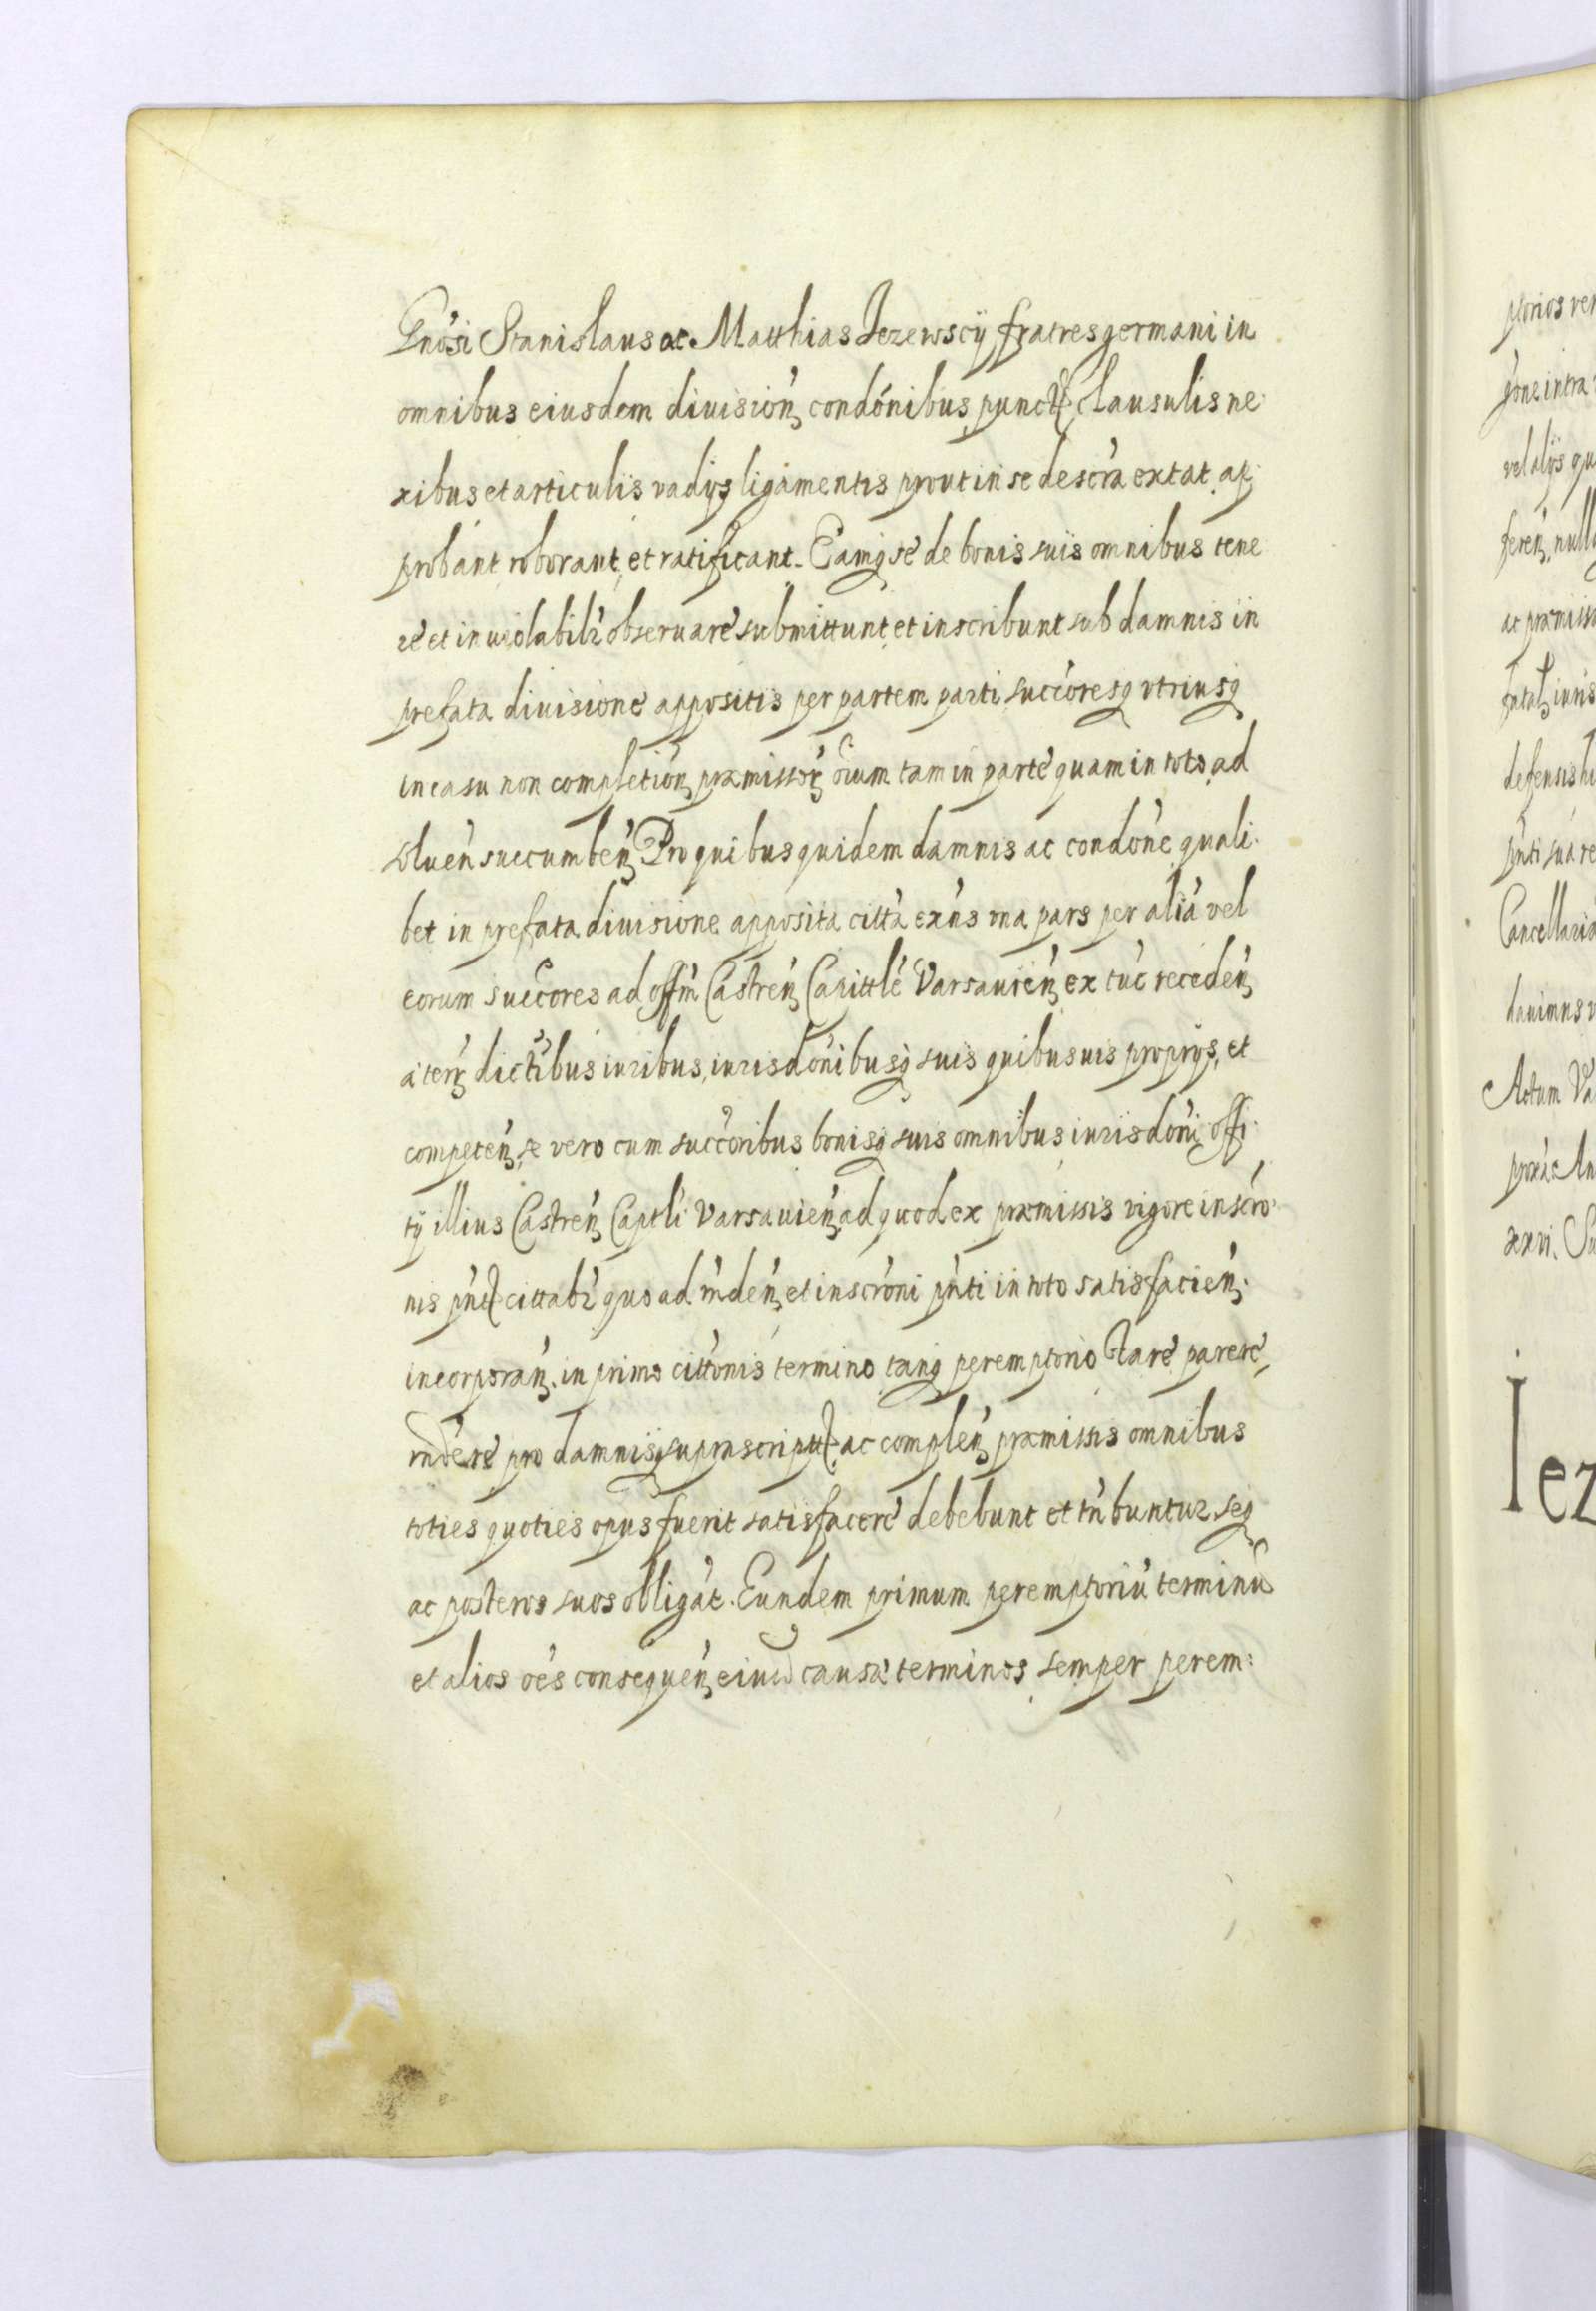 Gnosi Stanislaus ac Matthias Jezewscÿ fratres germani in
omnibus eiusdem diuisioń condónibus punct clausulis ne:
xibus et articulis vadÿs ligamentis prout in se descra extat ap:
probant roborant et ratificant. Eamq se de bonis suis omnibus tene
re et inuiolabilr obseruare submittunt et inscribunt sub damnis in
prefata diuisione appositis per partem parti succoresq vtriusq
in casu non completioń præmissor oium tam in parte quam in toto ad
soluen succumbeń Pro quibus quidem damnis ac condone quali:
bet in prefata diuisione apposita citta exńs vna pars per aliá vel
eorum succores ad offm Castreń Capittle Varsauień ex tuc recedeń
a terr dictibus iuribus, iurisdónibusq suis quibusuis proprÿs, et
competeń, se vero cum succoribus bonisq suis omnibus iurisdoni offi:
tÿ illius Castreń Captli Varsauień, ad quod ex præmissis vigore inscro:
nis pńt cittabr quo ad ńdeń et inscroni pńti in toto satisfacień:
incorporań. in primo cittonis termino tanq peremptorio stare parere,
rńdere pro damnisq suprascript ac compleń præmissis omnibus
toties quoties opus fuerit satisfacere debebunt et tńbuntur seq
ac posteros suos obligát. Eundem primum peremptoriu terminu
et alios oés consequeń eiusd causæ terminos semper perem:
ptorios
vel alÿs
ac præmissi
Cancellaria
dauimus
Actum
xxvi.
Iez